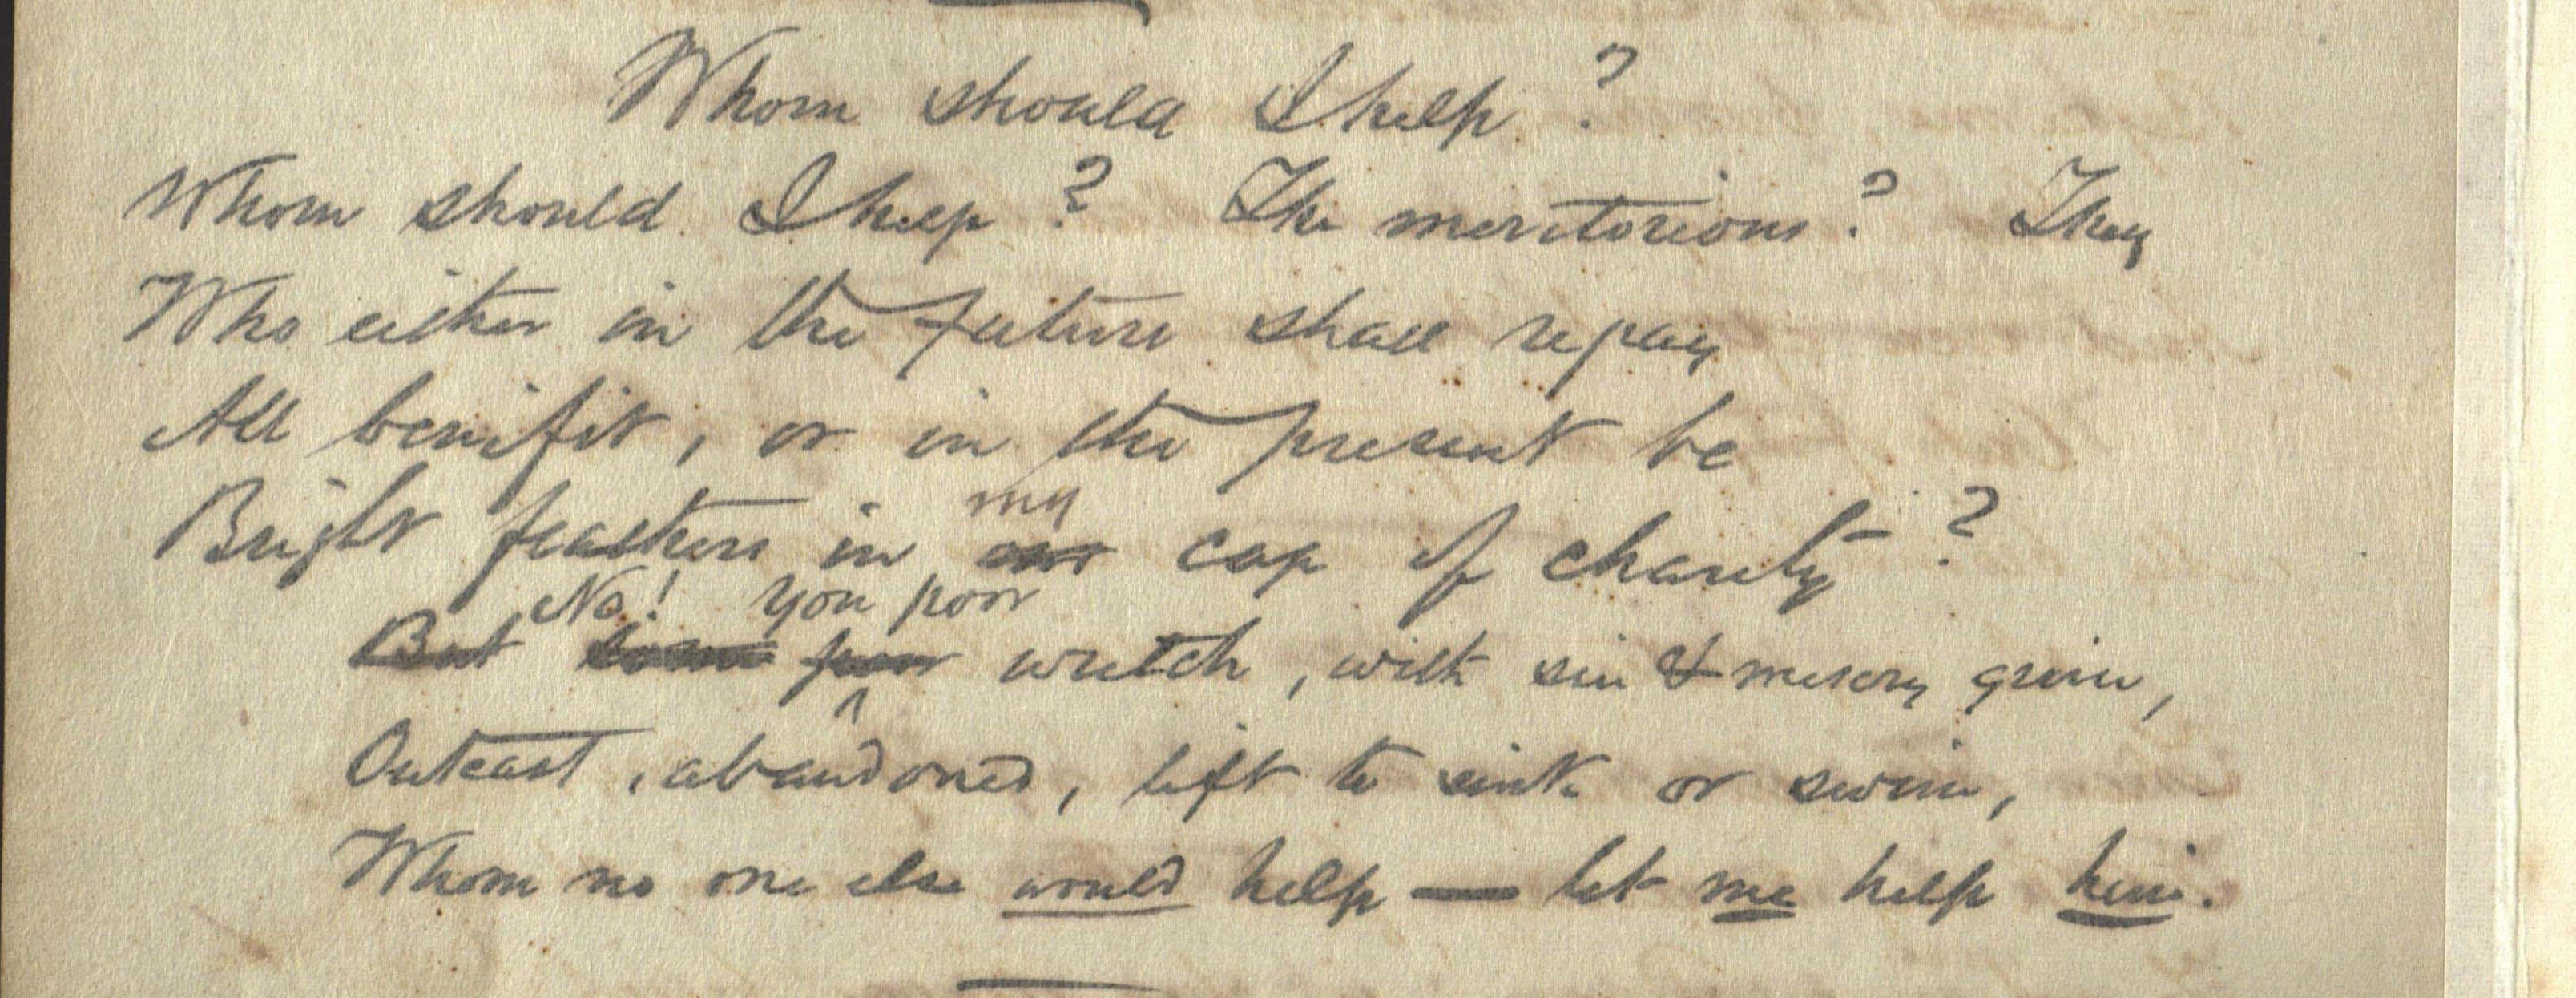 Whom should I help ?
Whom should I help ? The meritorious ? They
Who either in the future shall repay
All benifit, or in the present be
my
Bright feathers in cap of charity ?
No! you poor
But some poor wretch, with sin & misery grim,
Outcast, abandoned, left to sink or swim,
Whom no one else would help — let me help him.